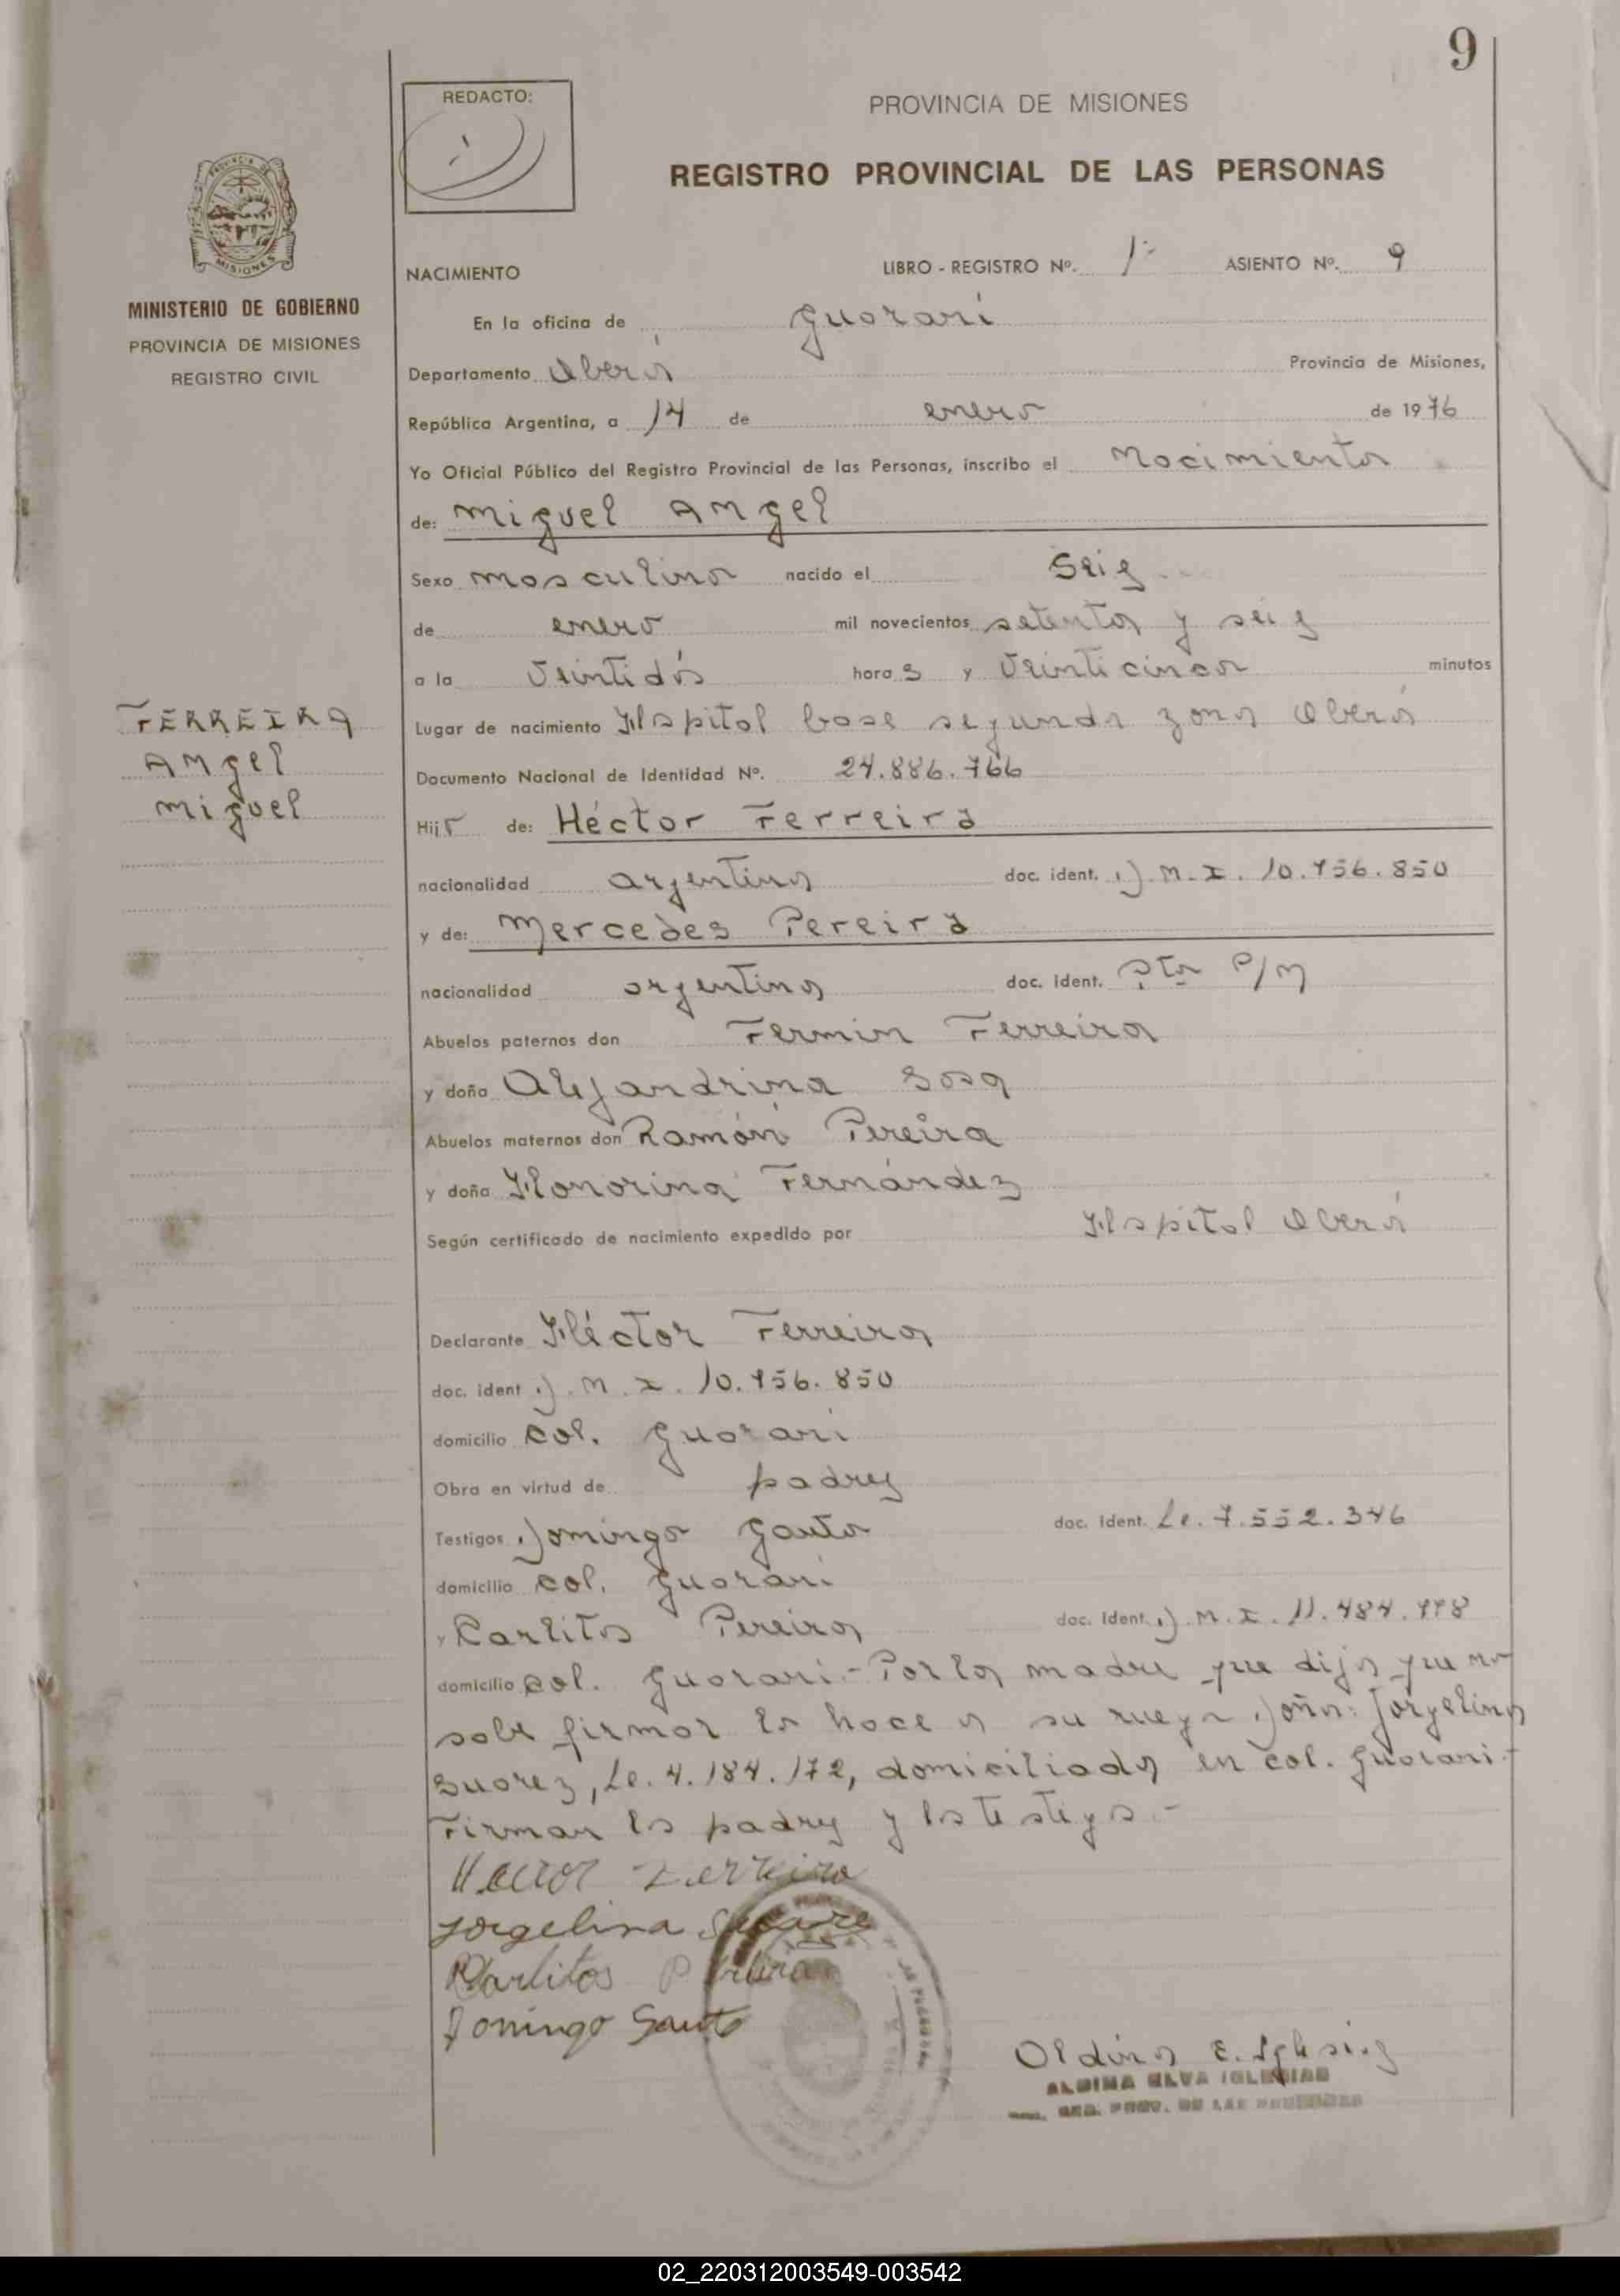 9
REDACTO:
PROVINCIA DE MISIONES
REGISTRO PROVINCIAL DE LAS PERSONAS
MISIONES
MINISTERIO DE GOBIERNO
PROVINCIA DE MISIONES
REGISTRO CIVIL
NACIMIENTO LIBRO - REGISTRO Nº. 1º ASIENTO Nº. 9
En la oficina de Guaraní
Departamento Oberá Provincia de Misiones,
República Argentina, a 14 de enero de 1976
Yo Oficial Público del Registro Provincial de las Personas, inscribo el Nacimiento
de: Miguel Angel
Sexo masculino nacido el Seis
de enero mil novecientos setenta y seis
a la Veintidós horas y Veinticinco minutos
Lugar de nacimiento Hospital base segunda zona Oberá
FERREIRA
Angel
Miguel
Documento Nacional de Identidad Nº. 24.886.766
Hijo de: Héctor Ferreira
nacionalidad argentina doc. ident. D.N.I. 10.956.850
y de: Mercedes Pereira
nacionalidad argentina doc. ident.
Abuelos paternos don Fermin Ferreira
y doña Alejandrina Sosa
Abuelos maternos don Ramón Pereira
y doña Honorina Fernández
Según certificado de nacimiento expedido por Hospital Oberá
Declarante Héctor Ferreira
doc. ident D.N.I. 10.956.850
domicilio Col. Guaraní
Obra en virtud de padres
Testigos Domingo Gauto doc. ident. Le. 7.552.346
domicilio Col. Guaraní
y Carlitos Pereira doc. ident. D.N.I. 11.484.998
domicilio Col. Guaraní.- Por la madre que dijo que no
sabe firmar lo hace a su ruego Doña: Jorgelina
Suarez, Lc. 4.184.172, domiciliada en col. Guaraní.-
Firman los padres y los testigos.-
Hector Ferreira
Jorgelina Suare
Carlitos Pereira
Domingo Gauto
Aldina E. Iglesias
ALDINA ELVA IGLESIAS
REG. PROV. DE LAS PERSONAS
02_220312003549-003542